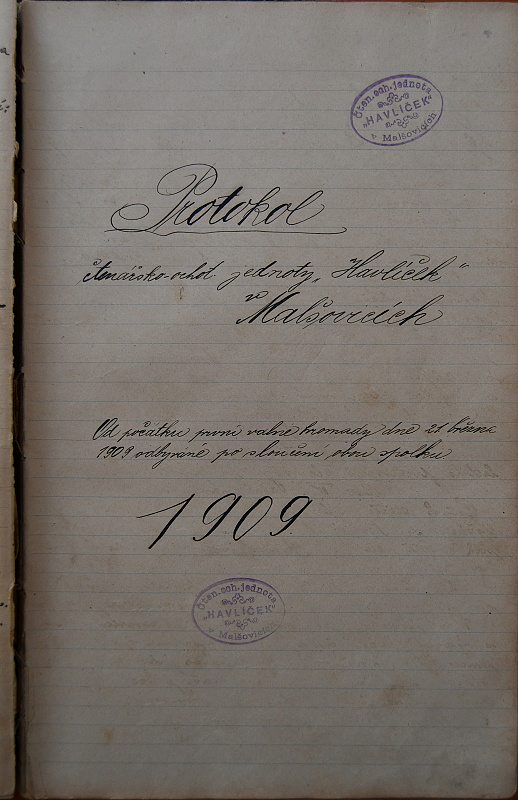 Čten. och. jednota
"HAVLÍČEK"
v Malšovicích
Protokol
čtenářsko-ochot. jednoty „Havlíček"
v Malšovicích
Od počátku první valné hromady dne 21 března
1909 odbývané po sloučení obou spolků.
1909
Čten. och. jednota
"HAVLÍČEK"
v Malšovicích